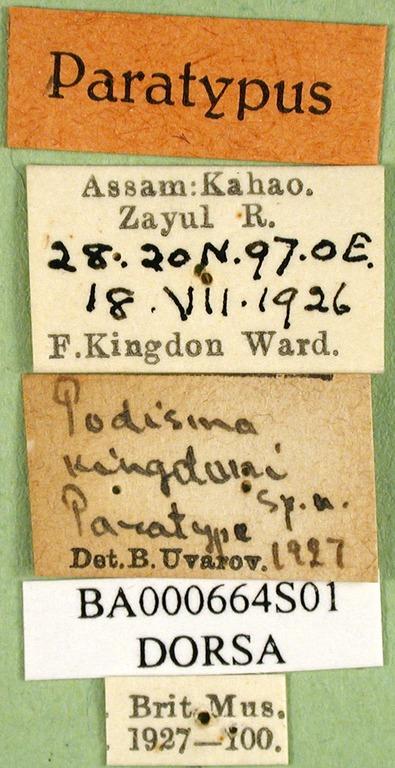 Paratypus
Assam:Kahao.
Zayul R.
28. 20 N. 97. 0 E.
18. VII. 1926
F. Kingdon Ward.
Podisma
kingdoni
sp. n.
Paratype
Det. B. Uvarov. 1927
BA000664S01
DORSA
Brit. Mus.
1927—100.